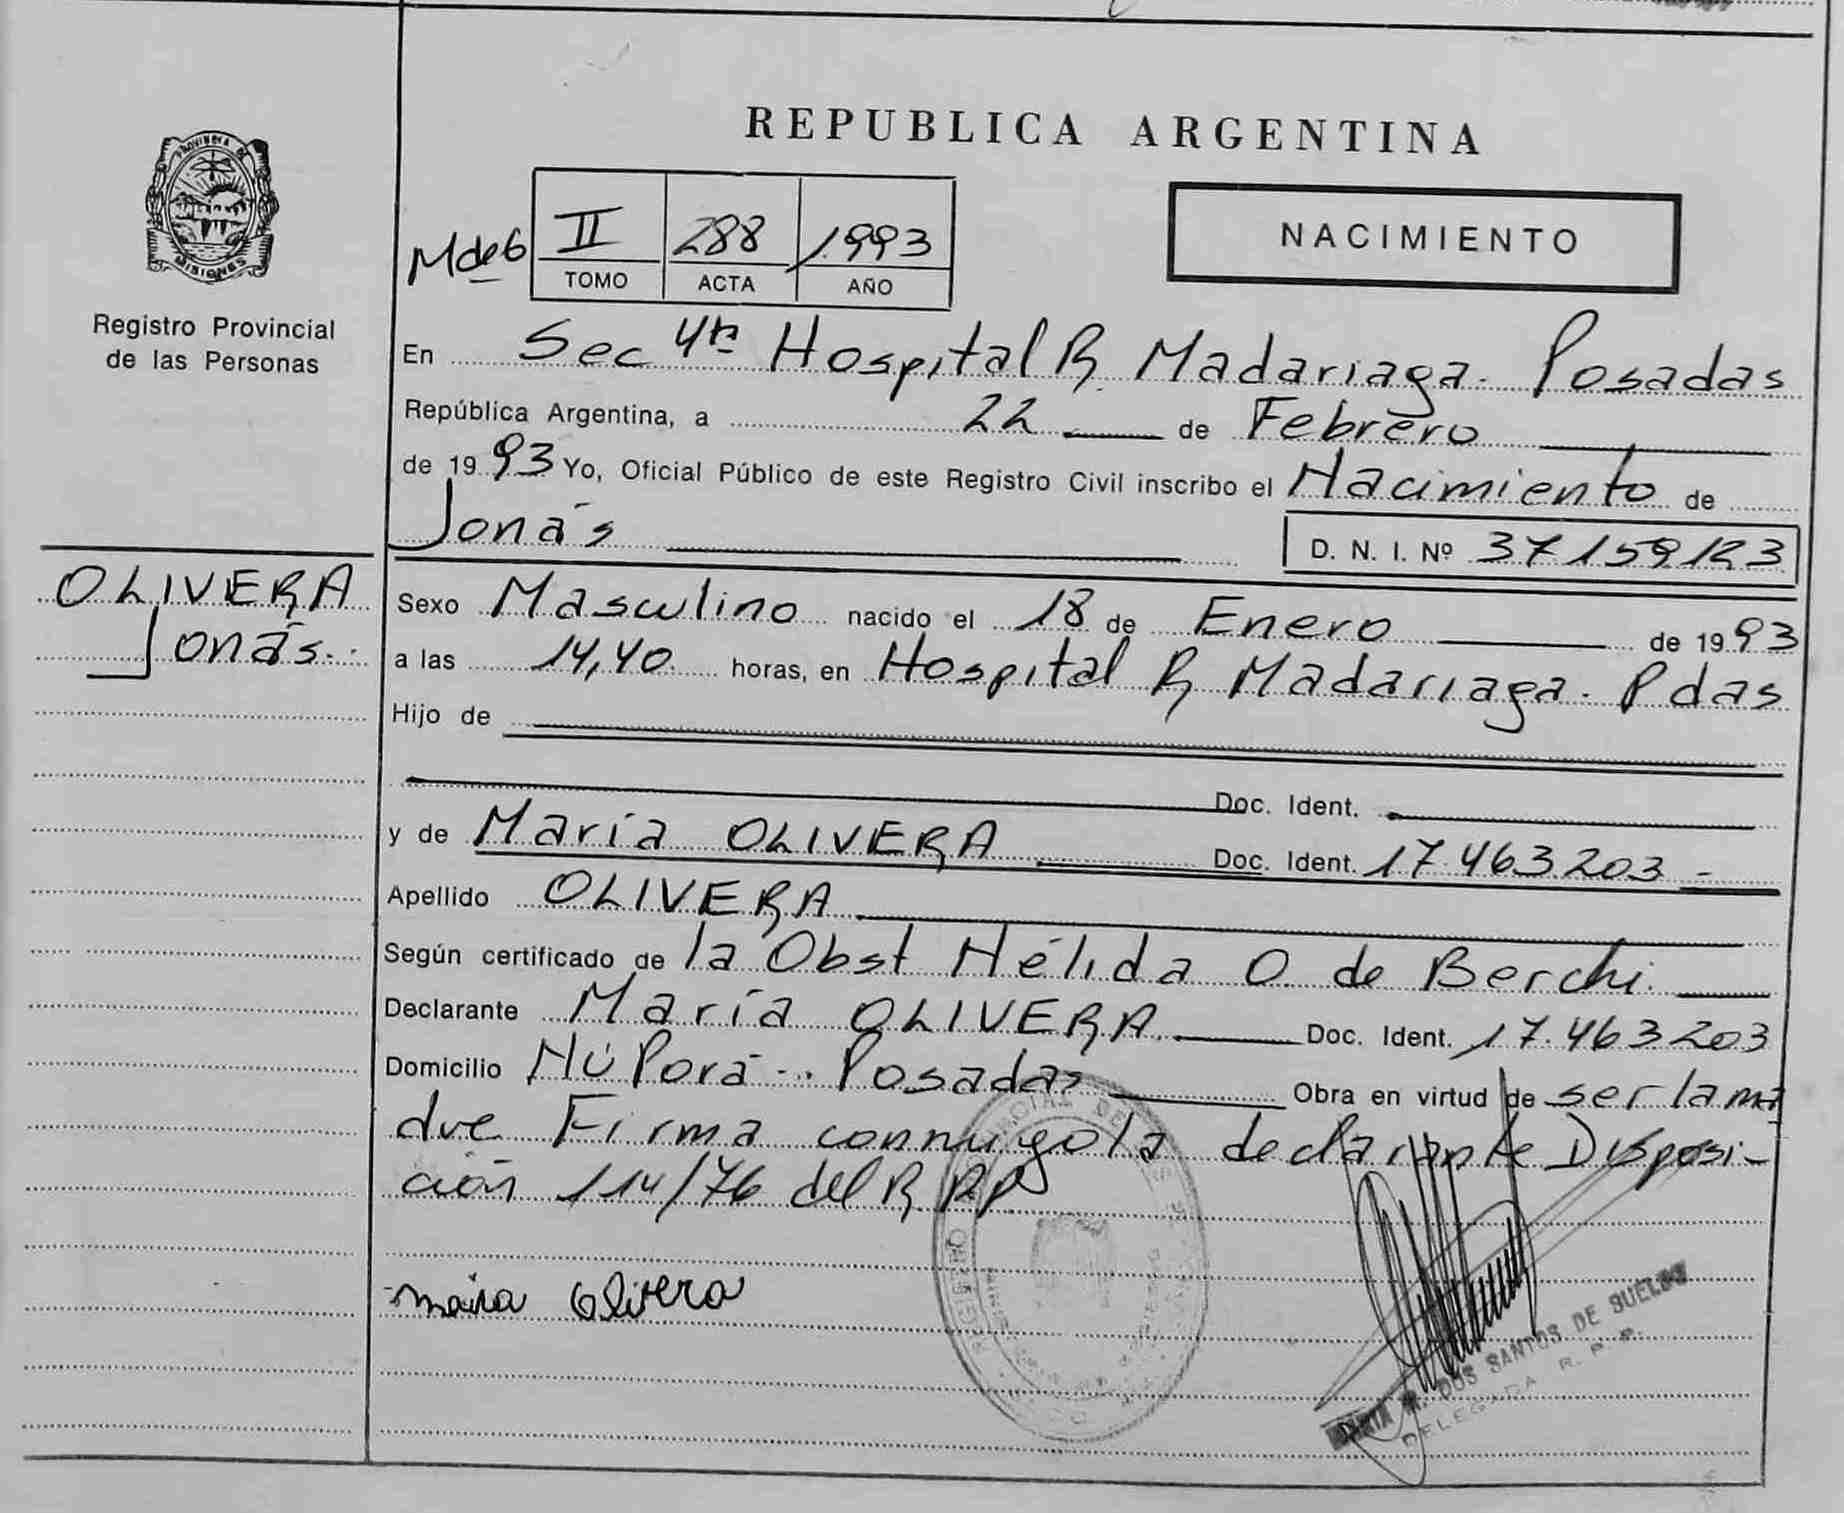 REPUBLICA ARGENTINA
PROVINCIA DE
MISIONES
Registro Provincial
de las Personas
Mde6 II 288 1993
TOMO ACTA AÑO
NACIMIENTO
En Sec 4ta Hospital R. Madariaga - Posadas
República Argentina, a 22 de Febrero
de 1993 Yo, Oficial Público de este Registro Civil inscribo el Nacimiento de
Jonás D. N. I. Nº 37159123
OLIVERA
Jonás
Sexo Masculino nacido el 18 de Enero de 1993
a las 14,40 horas, en Hospital R Madariaga - Pdas
Hijo de
Doc. Ident.
y de María OLIVERA Doc. Ident. 17.463.203 -
Apellido OLIVERA
Según certificado de la Obst Nélida O. de Berchi
Declarante María OLIVERA Doc. Ident. 17.463203
Domicilio Ñú Porá - Posadas Obra en virtud de ser la ma
dre Firma conmigo la declarante Disposi-
ción 114/76 del R.P.P
maria Olivera
DOS SANTOS DE
DELEGADA R. P. P.